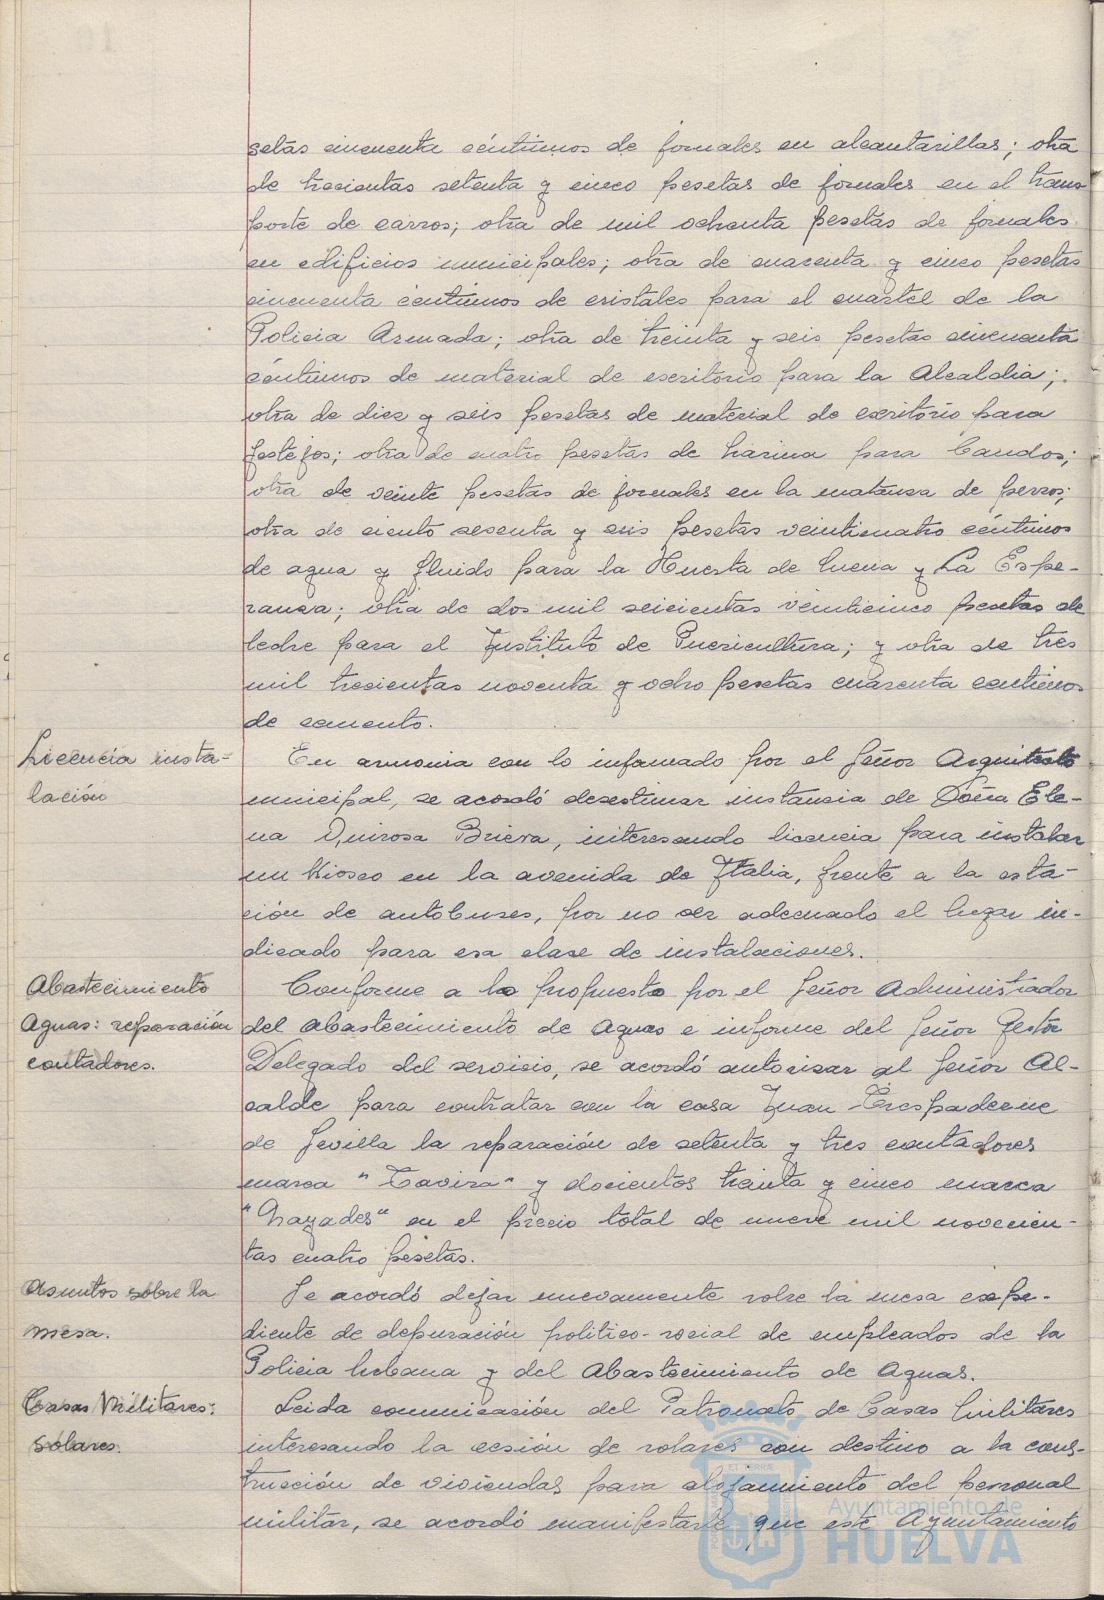 setas cincuenta céntimos de jornales en alcantarillas; otra
de trecientas setenta y cinco pesetas de jornales en el trans-
porte de carros; otra de mil ochenta pesetas de jornales
en edificios municipales; otra de cuarenta y cinco pesetas
cincuenta céntimos de cristales para el cuartel de la
Policia Armada; otra de treinta y seis pesetas cincuenta
céntimos de material de escritorio para la Alcaldia;
otra de diez y seis pesetas de material de escritorio para
festejos; otra de cuatro pesetas de harina para bandos;
otra de veinte pesetas de jornales en la matanza de perros;
otra de ciento sesenta y seis pesetas veinticuatro céntimos
de agua y fluido para la Huerta de Mena y La Espe-
ranza; otra de dos mil seicientas veinticinco pesetas de
leche para el Instituto de Puericultura; y otra de tres
mil trecientas noventa y ocho pesetas cuarenta centimos
de cemento.
Licencia insta-
lación
En armonia con lo informado por el Señor Arquitecto
municipal, se acordó desestimar instancia de Doña Ele-
na Quirosa Brieva, interesando licencia para instalar
un kiosco en la avenida de Italia, frente a la esta-
ción de autobuses, por no ser adecuado el lugar in-
dicado para esa clase de instalaciones.
Abastecimiento
Aguas: reparación
contadores.
Conforme a lo propuesto por el Señor Administrador
del abastecimiento de aguas e informe del Señor Gestor
Delegado del servicio, se acordó autorisar al Señor Al-
calde para contratar con la casa Juan Trespaderne
de Sevilla la reparación de setenta y tres contadores
marca "Tavira" y docientos treinta y cinco marca
"Nayades" en el precio total de nueve mil novecien-
tas cuatro pesetas.
Asuntos sobre la
mesa.
Se acordó dejar nuevamente sobre la mesa expe-
diente de depuración politico-social de empleados de la
Policia Urbana y del Abastecimiento de Aguas.
Casas Militares:
solares.
Leida comunicación del Patronato de Casas Militares
interesando la cesión de solares con destino a la cons-
trucción de viviendas para alojamiento del personal
militar, se acordó manifestarle que este Ayuntamiento
Ayuntamiento de
HUELVA